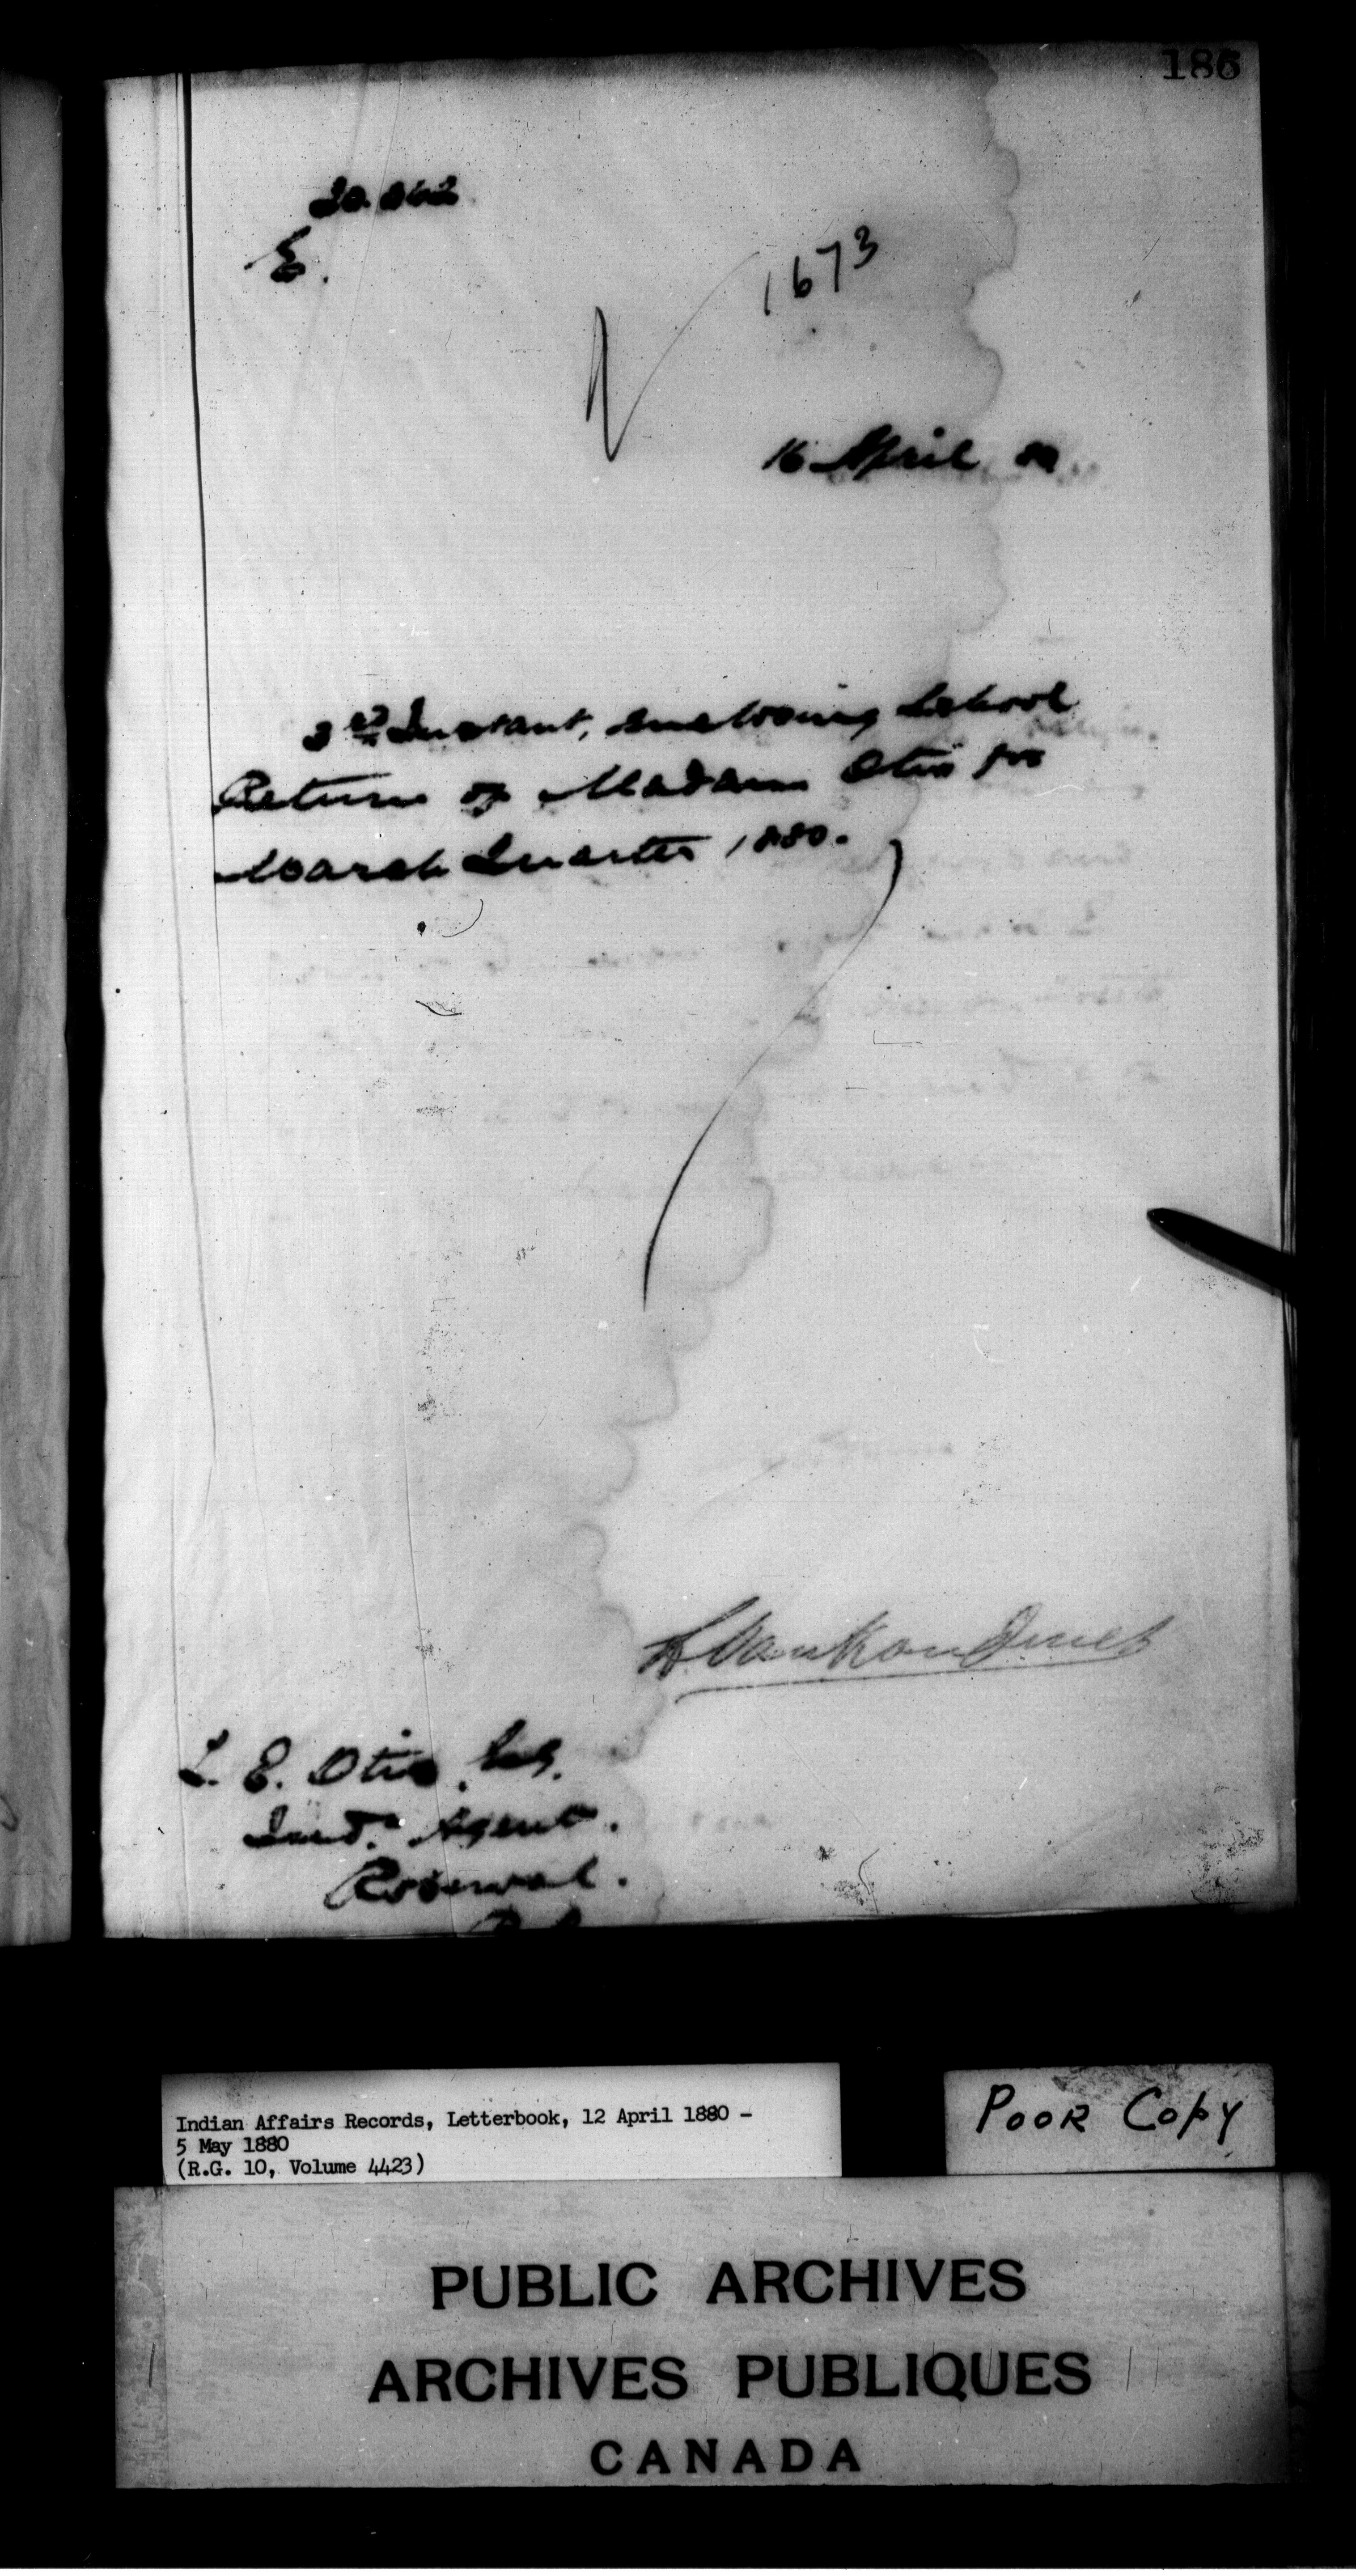 186
20.862
E.
1673
16 April 80
3rd Instant, enclosing School
Return of Madam Otis for
March Quarter 1880.
L VanKoughnet
L. E. Otis, Esq.
Ind. Agent.
Roberval.
Indian Affairs Records, Letterbook, 12 April 1880 -
5 May 1880
(R.G. 10, Volume 4423)
POOR COPY
PUBLIC ARCHIVES
ARCHIVES PUBLIQUES
CANADA